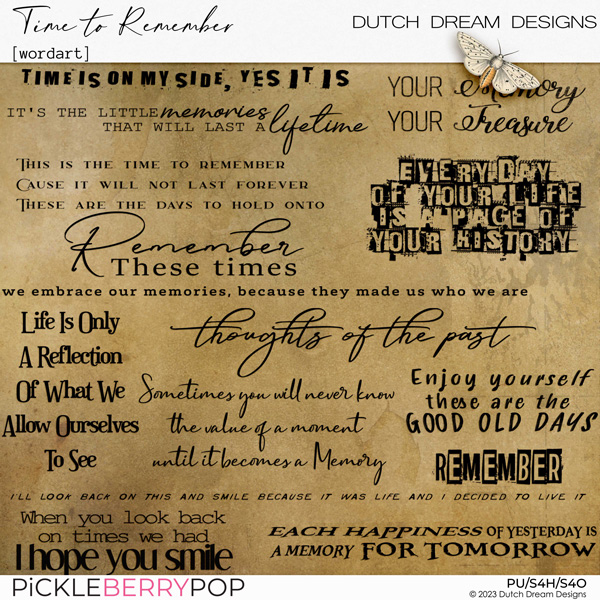 Time to Remember
DUTCH DREAM DESIGNS
[wordart]
TIME IS ON MY SIDE, YES IT IS
YOUR Memory
YOUR Treasure
IT'S THE LITTLE memories
THAT WILL LAST A lifetime
THIS IS THE TIME TO REMEMBER
CAUSE IT WILL NOT LAST FOREVER
THESE ARE THE DAYS TO HOLD ONTO
EVERY DAY
OF YOUR LIFE
IS A PAGE OF
YOUR HISTORY
Remember
These times
we embrace our memories, because they made us who we are
Life Is Only
A Reflection
Of What We
Allow Ourselves
To See
thoughts of the past
Sometimes you will never know
the value of a moment
until it becomes a Memory
Enjoy yourself
these are the
GOOD OLD DAYS
REMEMBER
I'LL LOOK BACK ON THIS AND SMILE BECAUSE IT WAS LIFE AND I DECIDED TO LIVE IT
When you look back
on times we had
I hope you smile
EACH HAPPINESS OF YESTERDAY IS
A MEMORY FOR TOMORROW
PiCKLEBERRYPOP
PU/S4H/S4O
© 2023 Dutch Dream Designs